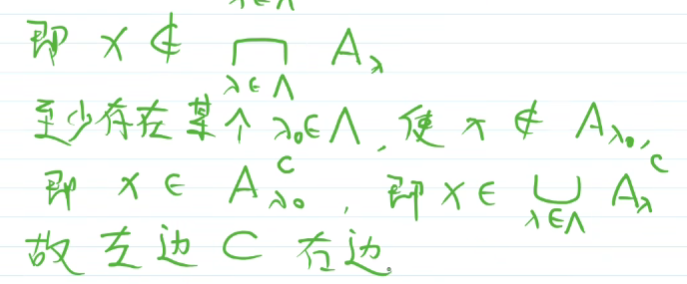 即 x ∉ ⋂_{λ∈Λ} A_λ
至少存在某个 λ₀∈Λ, 使 x ∉ A_{λ₀},
即 x ∈ A_{λ₀}^C, 即 x ∈ ⋃_{λ∈Λ} A_λ^C
故左边 ⊂ 右边.